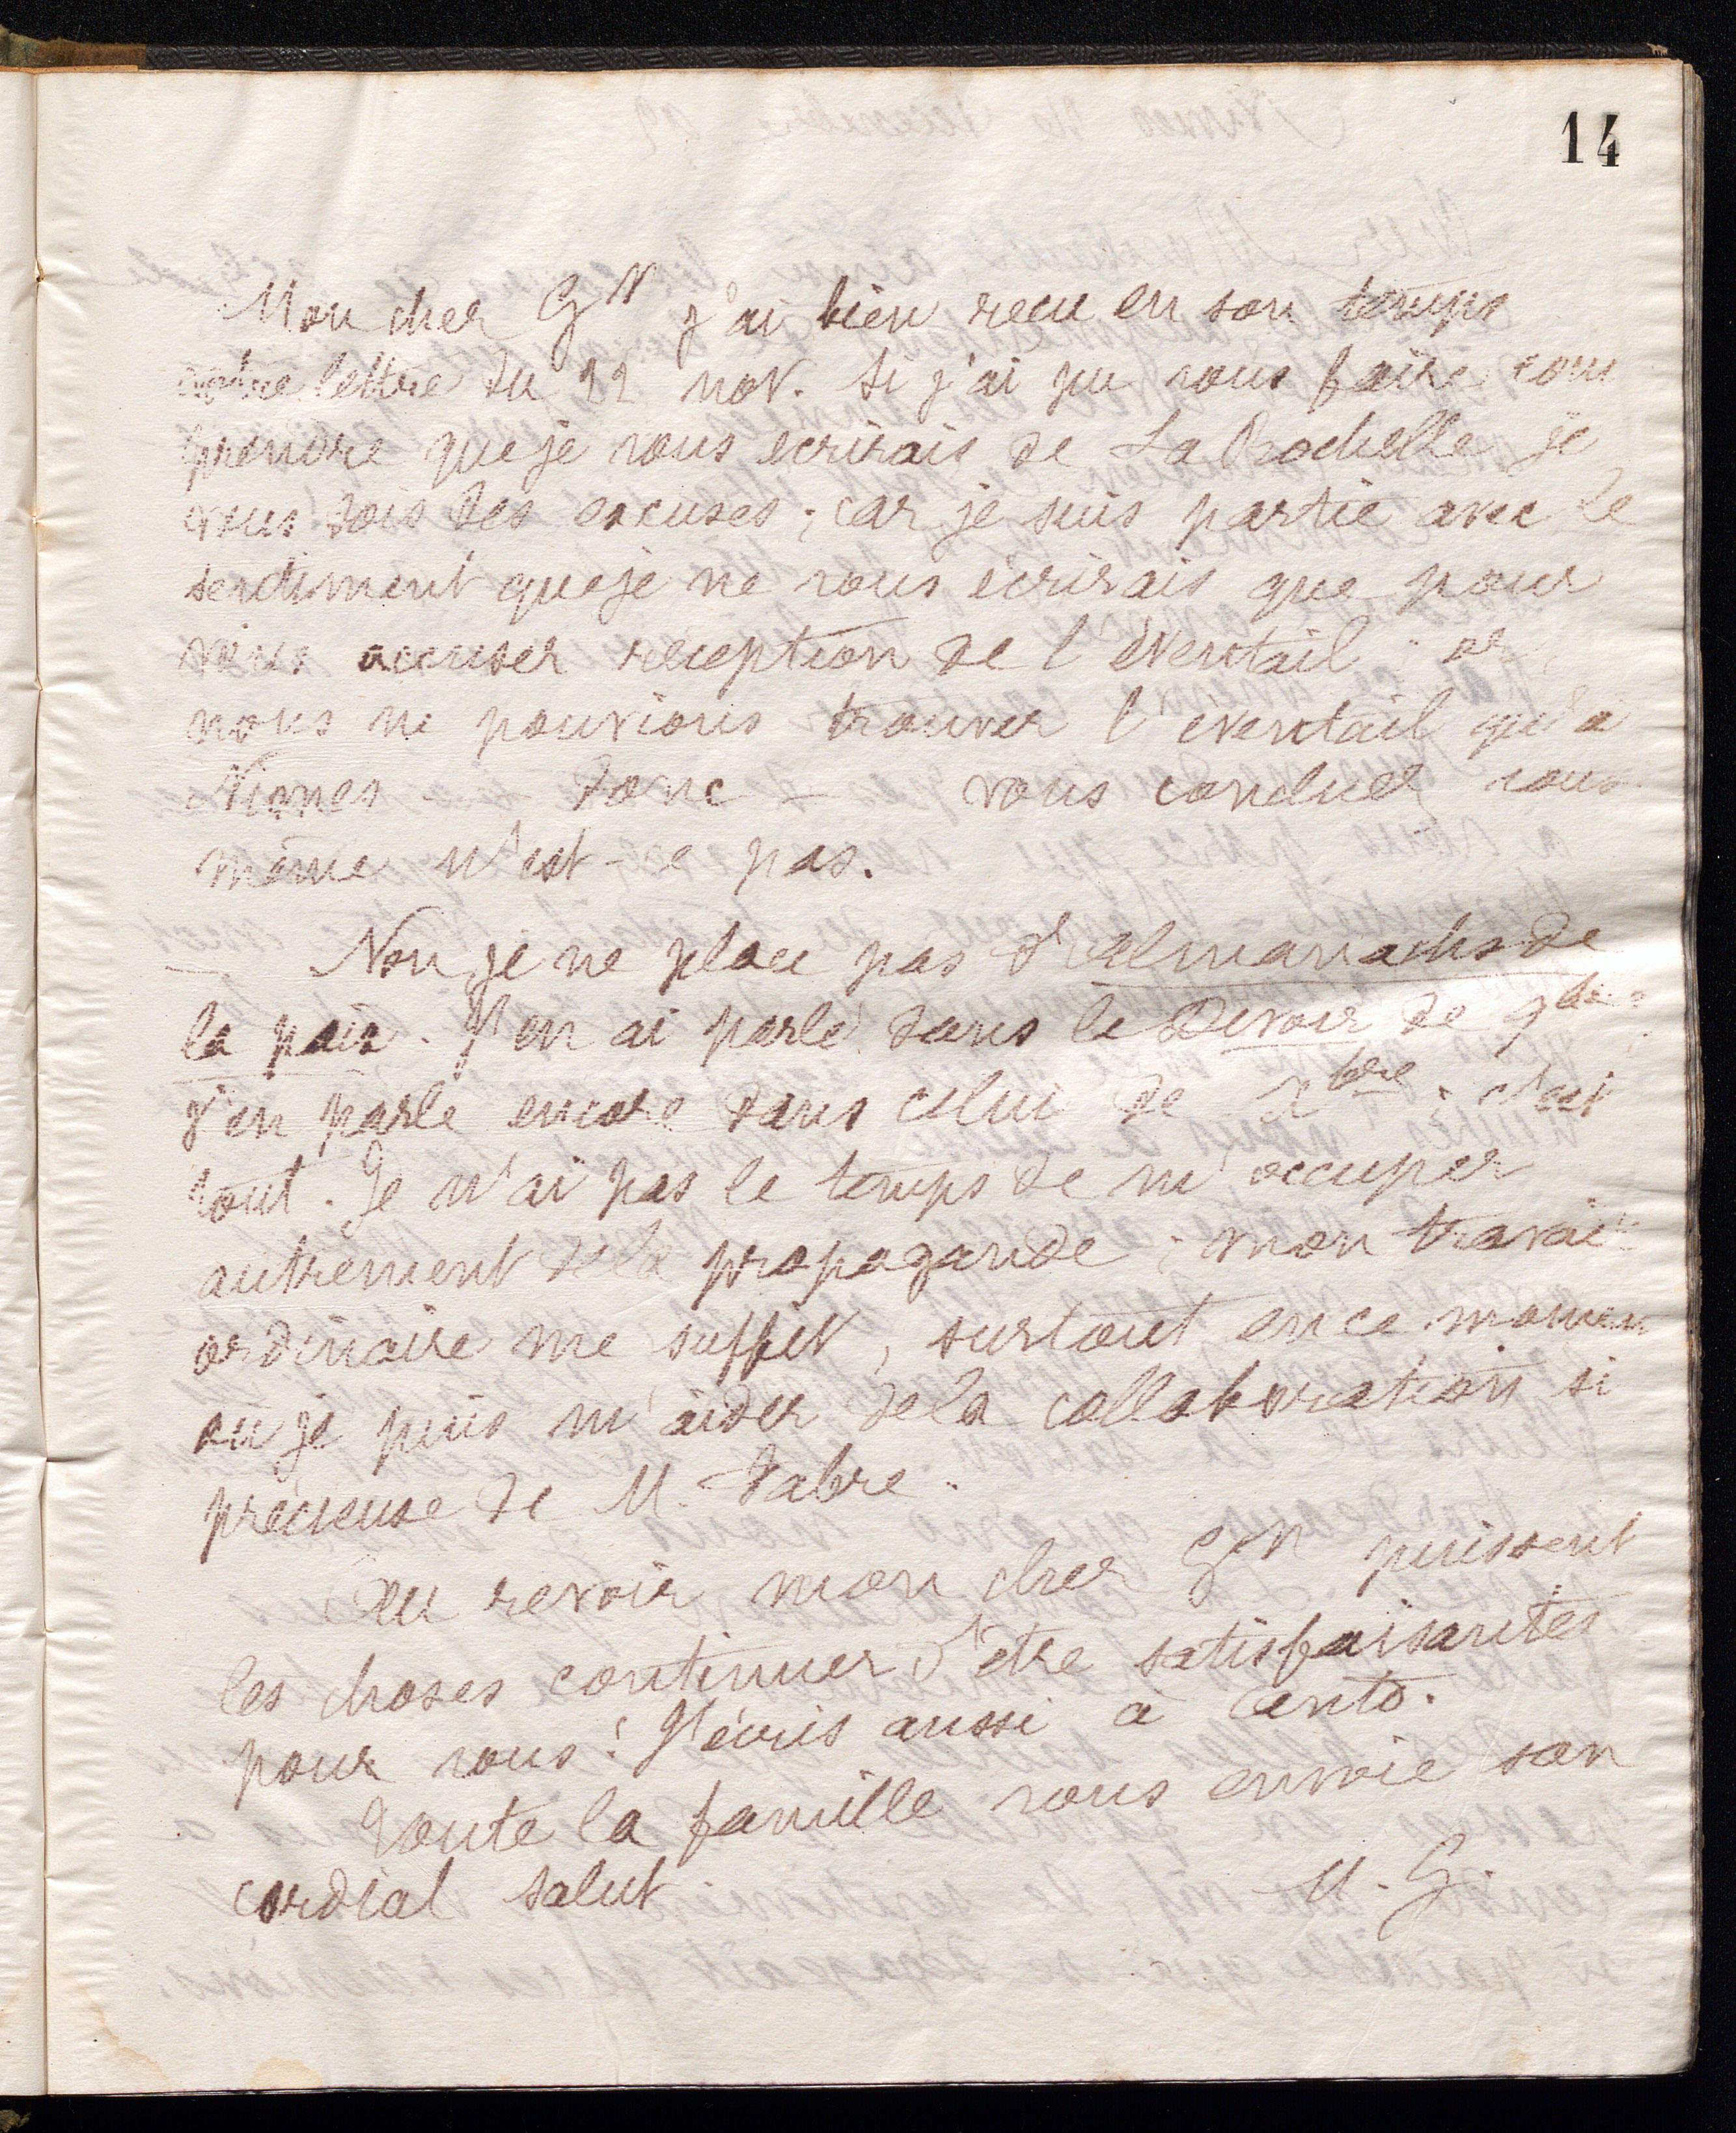 14
Mon cher Gn j'ai bien recu en son temps
votre lettre du 22 nov. Si j'ai pu vous faire com
prendre que je vous ecrirais de La Rochelle je
vous dois des excuses ; car je suis partie avec le
sentiment que je ne vous écrirais que pour
vous accuser réception de l'éventail ; or
nous ne pouvions trouver l'éventail qu'à
Nimes - donc - vous concluez vous
même n'est-ce pas.
- Non je ne place pas d'almanachs de
la paix. J'en ai parlé dans le Devoir de 9bre
j'en parle encore dans celui de Xbre ; c'est
tout. Je n'ai pas le temps de m'occuper
autrement de la propagande ; mon travail
ordinaire me suffit, surtout en ce momen
où je puis m'aider de la collaboration si
précieuse de M. Fabre.
Au revoir mon cher Gn puissent
les choses continuer d'être satisfaisantes
pour vous ! J'écris aussi à Cantо.
Toute la famille vous envoie son
cordial salut.
M. G.